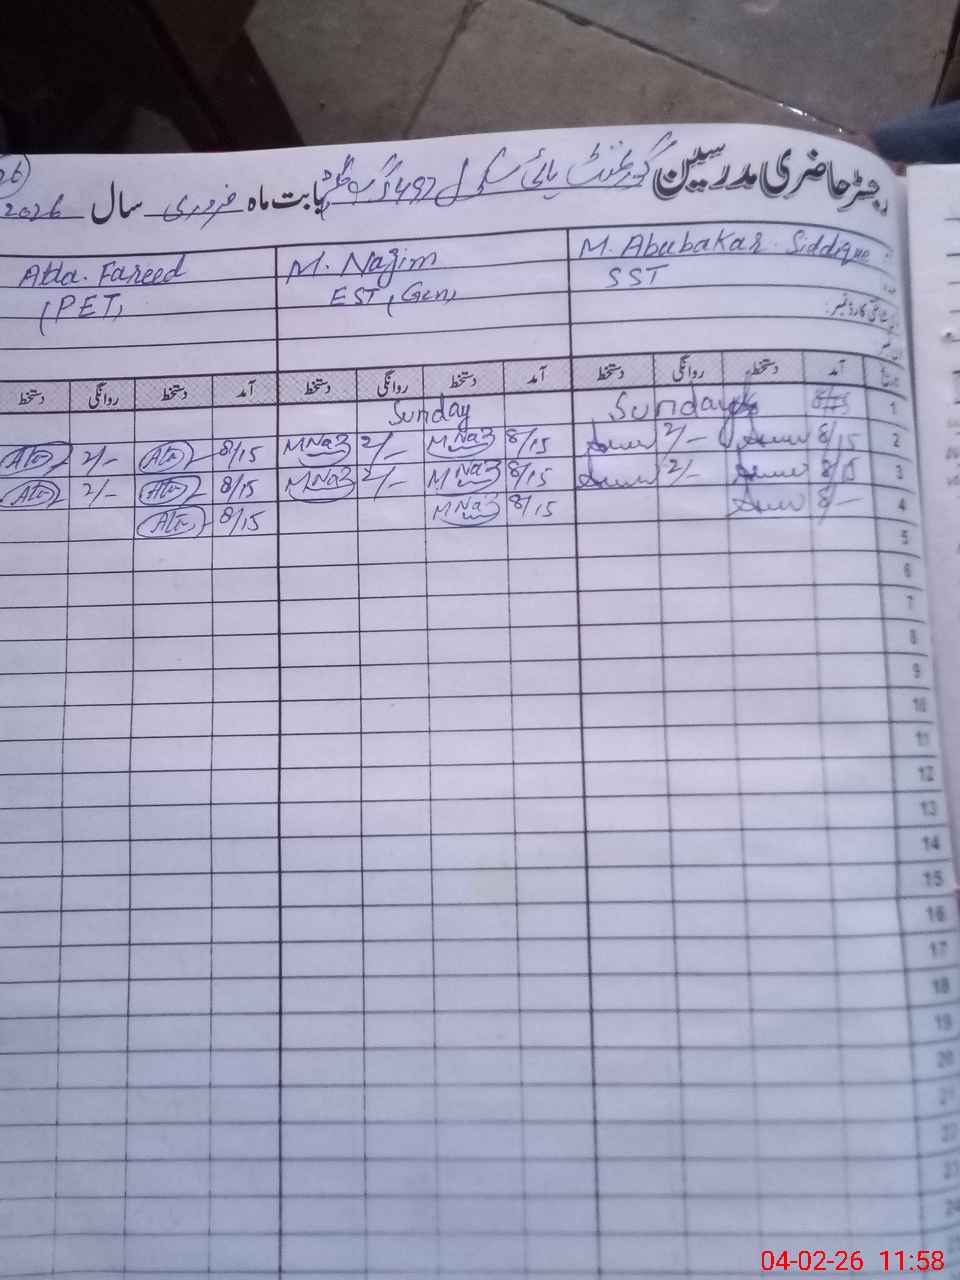 رجسٹر حاضری مدرسین گورنمنٹ ہائی سکول 497 گ ب بابت ماہ فروری سال 2026
M. Abubakar Siddque M. Nazim Atta. Fareed
SST EST (Gen) (PET)
آمد دستخط روانگی دستخط آمد دستخط روانگی دستخط آمد دستخط روانگی دستخط
1 8/15 Sunday Sunday
2 8/15 2/- 8/15 MNaz 2/- MNaz 8/15 Ata 2/- Ata
3 8/15 2/- 8/15 MNaz 2/- MNaz 8/15 Ata 2/- Ata
4 8/- 8/15 MNaz 8/15 Ata
5
6
7
8
9
10
11
12
13
14
15
16
17
18
19
20
21
22
23
24
04-02-26 11:58